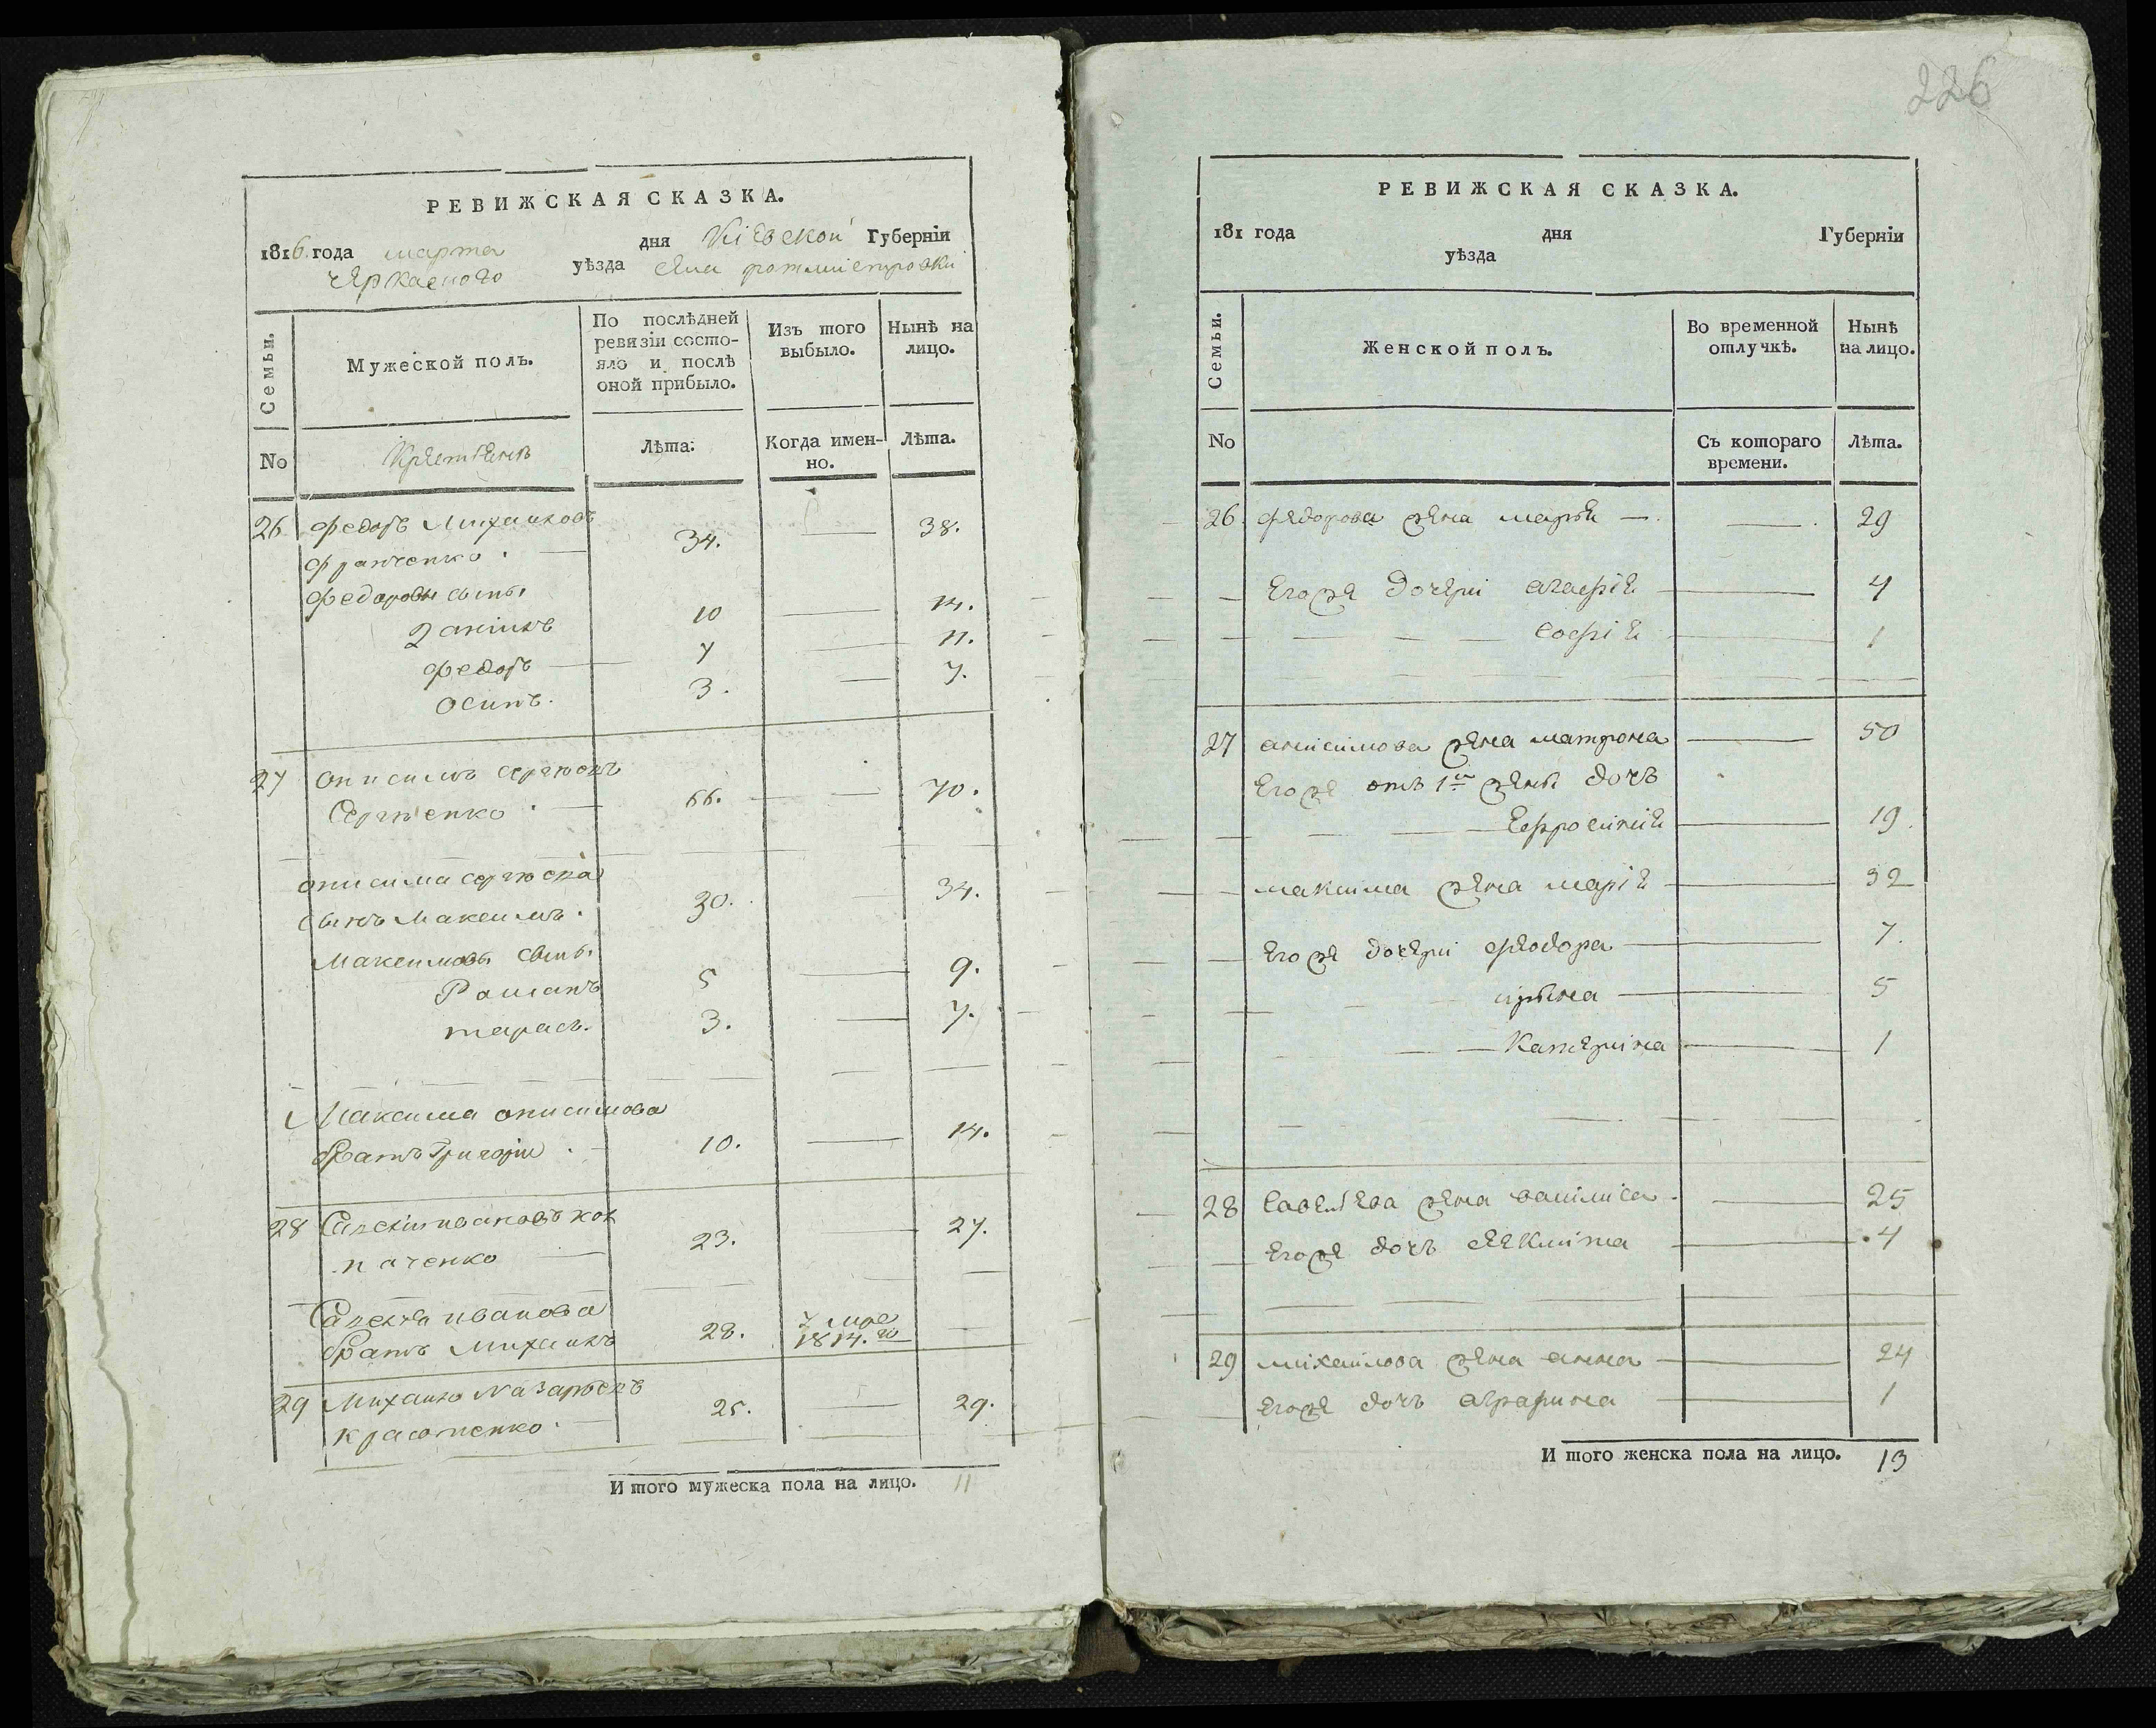 226
РЕВИЖСКАЯ СКАЗКА.
1816. года марта дня Кіевской Губерніи
Черкаского уѣзда села ротмистровки
Семьи.
Мужеской полъ.
По послѣдней ревизіи состояло и послѣ оной прибыло.
Изъ того выбыло.
Нынѣ на лицо.
No
Лѣта.
Когда именно.
Лѣта.
26 Федоръ Михаиловъ
Франченко. 34. — 38.
Федоровы сыны
Данилъ 10 — 14.
Федоръ — 7 — 11.
Осипъ. 3. — 7.
27 Онисимъ
Сергіенко. — 66. — 70.
онисима
сынъ Максимъ. 30. — 34.
Максимовы сыны.
Романъ 5 — 9.
тарасъ. 3. — 7.
Максима онисимова
братъ Григорій. 10. — 14.
28
паченко — 23. — 27.
иванова
братъ Михаилъ 28. 1814. го —
29 Михаило
25. — 29.
И того мужеска пола на лицо. 11
РЕВИЖСКАЯ СКАЗКА.
181 года дня Губерніи
уѣзда
Семьи.
Женской полъ.
Во временной отлучкѣ.
Нынѣ на лицо.
No
Съ котораго времени.
Лѣта.
26. Федорова жена марья — — 29
Егоже дочери агафія — 4
софія — 1
27 анисимова жена матрона — 50
Егоже отъ 1й жены дочь
Ефросинія — 19.
максима жена марія — 32
Егоже дочери феодора — 7.
ирына — 5
Катерина — 1
28 савельева жена василиса — 25
Егоже дочь — 4
29 михайлова жена анна — 24
Егоже дочь аграфина — 1
И того женска пола на лицо. 13